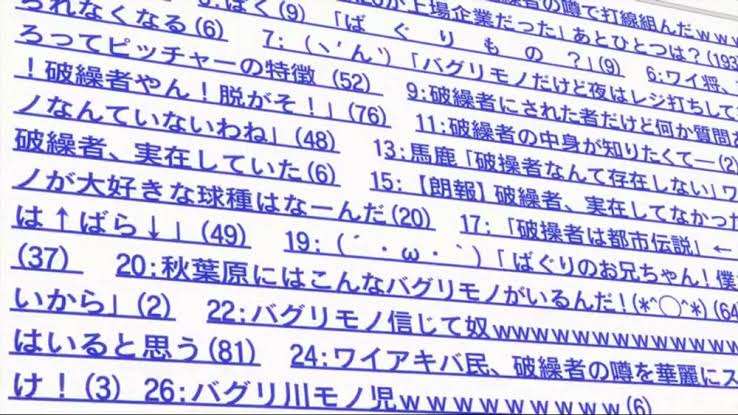 者の噂で打線組んだｗｗｗ
られなくなる(6) :ぼく(9) 「 が上場企業だった」あとひとつは？(193)
「 ば ぐ り も の ？」(9) 6:ワイ将、
ろってピッチャーの特徴 (52) 7: (ヽ´ん`)「バグリモノだけど夜はレジ打ちして
！破繰者やん！脱がそ！」(76) 9:破繰者にされた者だけど何か質問
ノなんていないわね」(48) 11:破繰者の中身が知りたくて―(2)
破繰者、実在していた(6) 13:馬鹿「破操者なんて存在しない」ワ
ノが大好きな球種はなーんだ(20) 15:【朗報】破繰者、実在してなかった
は↑ばら↓」(49) 17:「破操者は都市伝説」←
(37) 19:(´・ω・`)「ばぐりのお兄ちゃん！僕
20:秋葉原にはこんなバグリモノがいるんだ！(*^◯^*) (64
いから」(2) 22:バグリモノ信じて奴wwwwwwwwwwww
はいると思う(81) 24:ワイアキバ民、破繰者の噂を華麗にス
け！(3) 26:バグリ川モノ児ｗｗｗｗｗｗｗｗｗ(6)